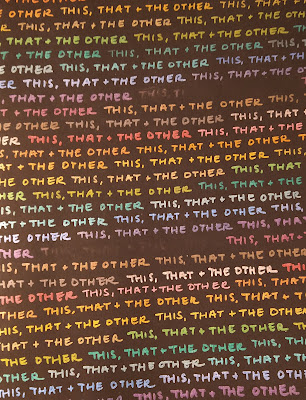 THE OTHER THIS, THAT + THE OTHER
THIS, THAT + THE OTHER THIS, THAT + THE
THIS, THAT + THE OTHER THIS, THAT + THE OTHER
+ THE OTHER THIS, THAT + THE OTHER
OTHER THIS, THAT + THE OTHER THIS, THAT + THE
OTHER THIS, THAT + THE OTHER THIS, THAT + THE
THIS, THAT + THE OTHER
THAT + THE OTHER THIS, THAT + THE OTHER THIS,
THE OTHER THIS, THAT + THE OTHER THIS,
OTHER THIS, THAT + THE OTHER THIS, THAT +
THIS, THAT + THE OTHER THIS, THAT + THE OTHER
THAT + THE OTHER THIS, THAT + THE OTHER
THE OTHER THIS, THAT + THE OTHER THIS,
OTHER THIS, THAT + THE OTHER THIS, THAT
THIS, THAT + THE OTHER THIS, THAT + THE OTHER
THAT + THE OTHER THIS, THAT + THE OTHER
THE OTHER THIS, THAT + THE OTHER THIS,
THIS, THAT
THIS, THAT + THE OTHER THIS, THAT + THE OTHER
THAT + THE OTHER THIS, THAT + THE OTHER
THE OTHER THIS, THAT + THE OTHER THIS,
OTHER THIS, THAT + THE OTHER THIS, THAT +
THIS, THAT + THE OTHER THIS, THAT + THE OTHER
THIS, THAT + THE OTHER
THE OTHER THIS, THAT + THE OTHER THIS,
THIS, THAT + THE OTHER THIS, THAT
OTHER THIS, THAT + THE OTHER THIS, THAT + THE
THIS, THAT + THE OTHER THIS, THAT + THE OTHER